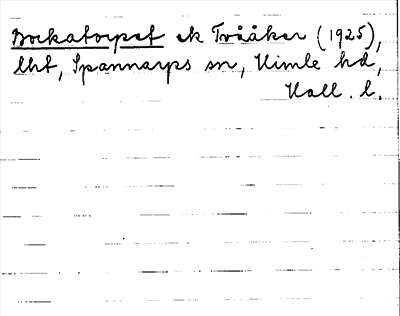 Bockatorpet ek Tvååker (1925),
lht, Spannarps sn, Himle hd,
Hall. l.